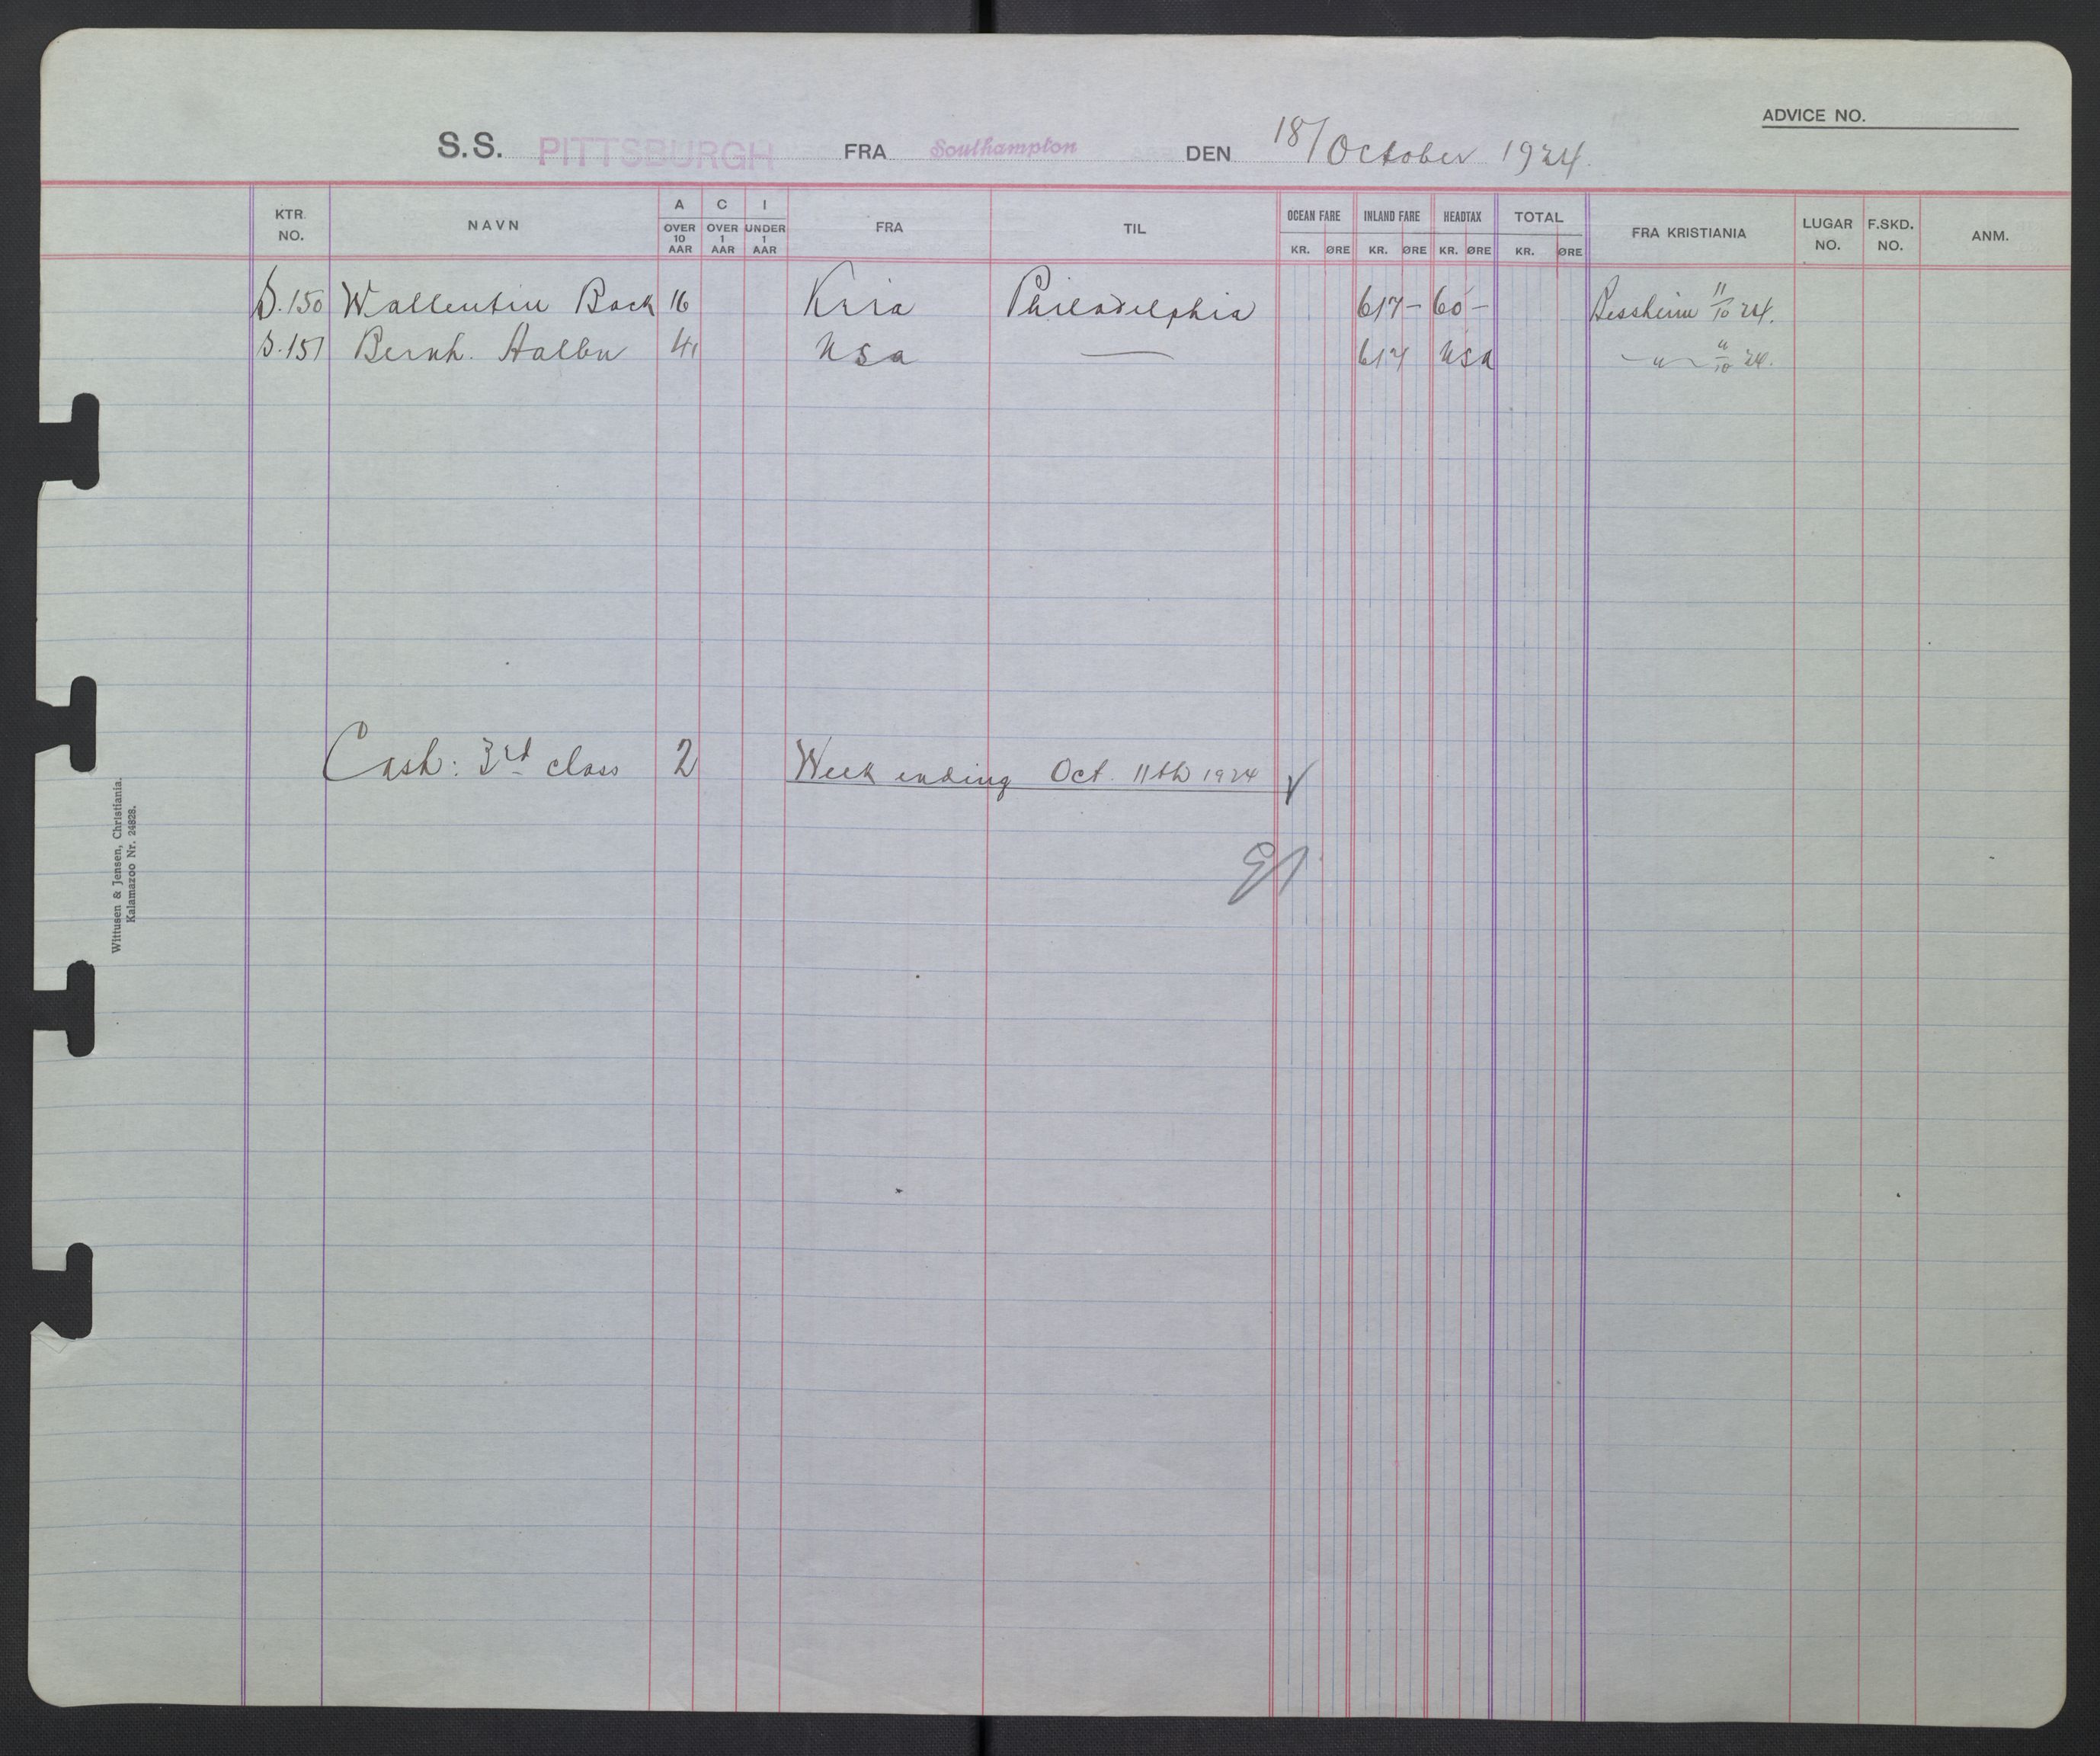 ADVICE NO.
S.S. PITTSBURGH FRA Southampton DEN 18/October 1924.
KTR. NO. NAVN A OVER 10 AAR C OVER 1 AAR I UNDER 1 AAR FRA TIL OCEAN FARE KR. ØRE INLAND FARE KR. ØRE HEADTAX KR. ØRE TOTAL KR. ØRE FRA KRISTIANIA LUGAR NO. F.SKD. NO. ANM.
S.150 Wallentin Back 16 Kria Philadelphia 617- 60- Bessheim 11/10 24.
S.151 Bernh. Aalbu 41 Usa — 617 Usa — " — 11/10 24.
Cash: 3rd class 2 Week ending Oct. 11th 1924 √
Wittusen & Jensen, Christiania.
Kalamazoo Nr. 24828.